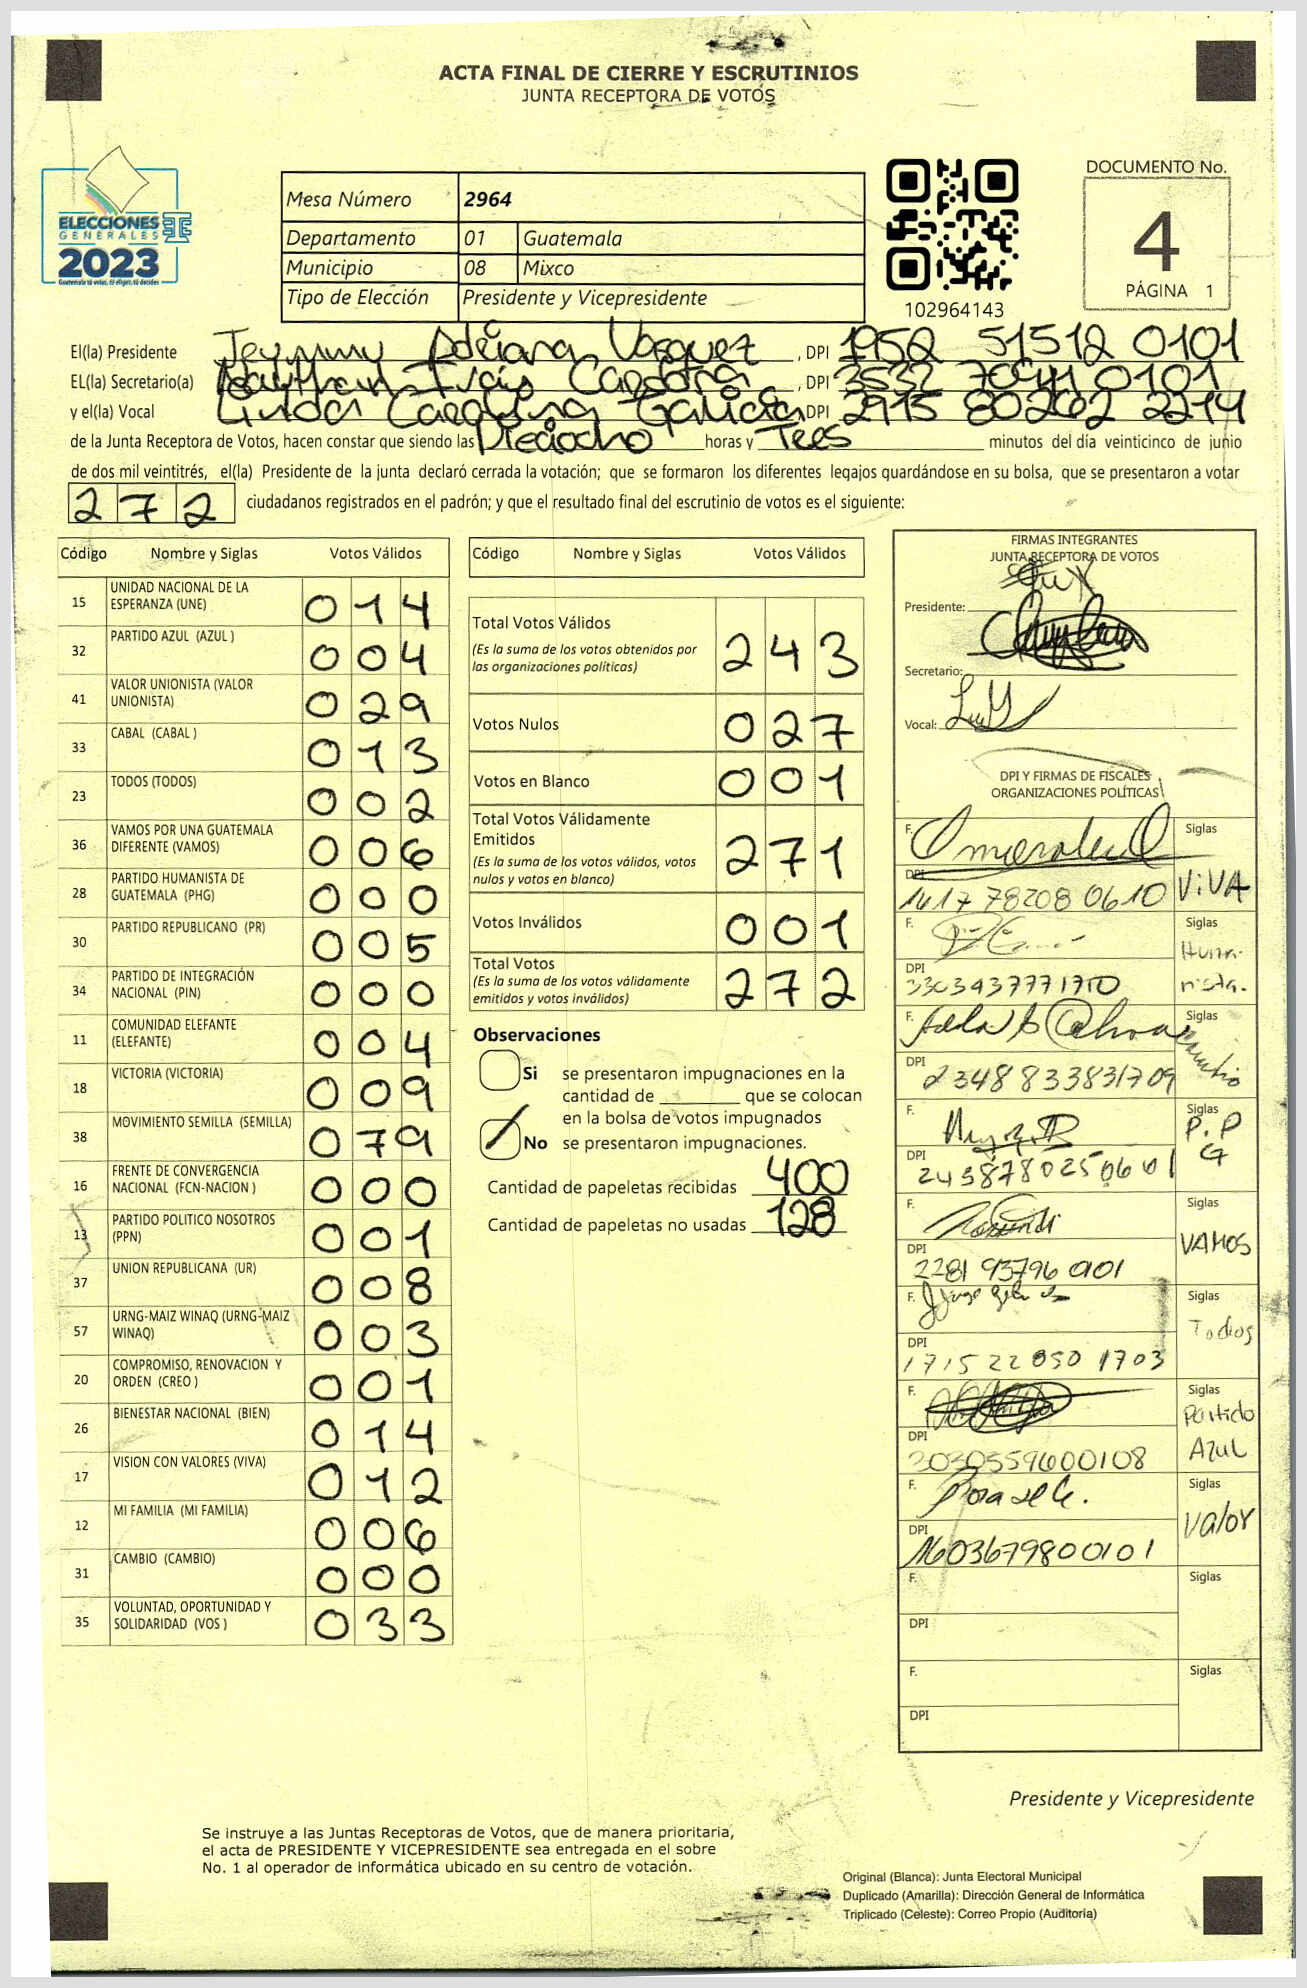 ACTA FINAL DE CIERRE Y ESCRUTINIOS
JUNTA RECEPTORA DE VOTOS
ELECCIONES
GENERALES
2023
Guatemala tú votas, tú eliges, tú decides
Mesa Número 2964
Departamento 01 Guatemala
Municipio 08 Mixco
Tipo de Elección Presidente y Vicepresidente
102964143
DOCUMENTO No.
4
PÁGINA 1
El(la) Presidente Jeymmy Adriana Vasquez, DPI 1952 51512 0101
EL(la) Secretario(a) Cardona, DPI 3532 0101
y el(la) Vocal Linda Carolina Galicia DPI 2915 80262 2214
de la Junta Receptora de Votos, hacen constar que siendo las Dieciocho horas y Tres minutos del día veinticinco de junio
de dos mil veintitrés, el(la) Presidente de la junta declaró cerrada la votación; que se formaron los diferentes legajos guardándose en su bolsa, que se presentaron a votar
272 ciudadanos registrados en el padrón; y que el resultado final del escrutinio de votos es el siguiente:
Código Nombre y Siglas Votos Válidos
15 UNIDAD NACIONAL DE LA ESPERANZA (UNE) 014
32 PARTIDO AZUL (AZUL ) 004
41 VALOR UNIONISTA (VALOR UNIONISTA) 029
33 CABAL (CABAL ) 013
23 TODOS (TODOS) 002
36 VAMOS POR UNA GUATEMALA DIFERENTE (VAMOS) 006
28 PARTIDO HUMANISTA DE GUATEMALA (PHG) 000
30 PARTIDO REPUBLICANO (PR) 005
34 PARTIDO DE INTEGRACIÓN NACIONAL (PIN) 000
11 COMUNIDAD ELEFANTE (ELEFANTE) 004
18 VICTORIA (VICTORIA) 009
38 MOVIMIENTO SEMILLA (SEMILLA) 079
16 FRENTE DE CONVERGENCIA NACIONAL (FCN-NACION ) 000
13 PARTIDO POLITICO NOSOTROS (PPN) 001
37 UNION REPUBLICANA (UR) 008
57 URNG-MAIZ WINAQ (URNG-MAIZ WINAQ) 003
20 COMPROMISO, RENOVACION Y ORDEN (CREO ) 001
26 BIENESTAR NACIONAL (BIEN) 014
17 VISION CON VALORES (VIVA) 012
12 MI FAMILIA (MI FAMILIA) 006
31 CAMBIO (CAMBIO) 000
35 VOLUNTAD, OPORTUNIDAD Y SOLIDARIDAD (VOS ) 033
Código Nombre y Siglas Votos Válidos
Total Votos Válidos 243
(Es la suma de los votos obtenidos por
las organizaciones políticas)
Votos Nulos 027
Votos en Blanco 001
Total Votos Válidamente
Emitidos 271
(Es la suma de los votos válidos, votos
nulos y votos en blanco)
Votos Inválidos 001
Total Votos 272
(Es la suma de los votos válidamente
emitidos y votos inválidos)
Observaciones
Si se presentaron impugnaciones en la
cantidad de ________ que se colocan
en la bolsa de votos impugnados
No se presentaron impugnaciones.
Cantidad de papeletas recibidas 400
Cantidad de papeletas no usadas 128
FIRMAS INTEGRANTES
JUNTA RECEPTORA DE VOTOS
Presidente:
Secretario:
Vocal:
DPI Y FIRMAS DE FISCALES
ORGANIZACIONES POLÍTICAS
F. Siglas
DPI 1617 78208 0610 ViVA
F. Siglas
DPI 3303437771710 Humanista.
F. Siglas
DPI 2348833831709
F. Siglas
DPI 2438780250601 P.P G
F. Siglas
DPI 2281 93796 0101 VAMOS
F. Siglas
DPI 1715 22850 1703 Todos
F. Siglas
DPI 3030359600108 Partido Azul
F. Rosa de G. Siglas
DPI 1603679800101 Valor
F. Siglas
DPI
F. Siglas
DPI
Presidente y Vicepresidente
Se instruye a las Juntas Receptoras de Votos, que de manera prioritaria,
el acta de PRESIDENTE Y VICEPRESIDENTE sea entregada en el sobre
No. 1 al operador de informática ubicado en su centro de votación.
Original (Blanca): Junta Electoral Municipal
Duplicado (Amarilla): Dirección General de Informática
Triplicado (Celeste): Correo Propio (Auditoría)